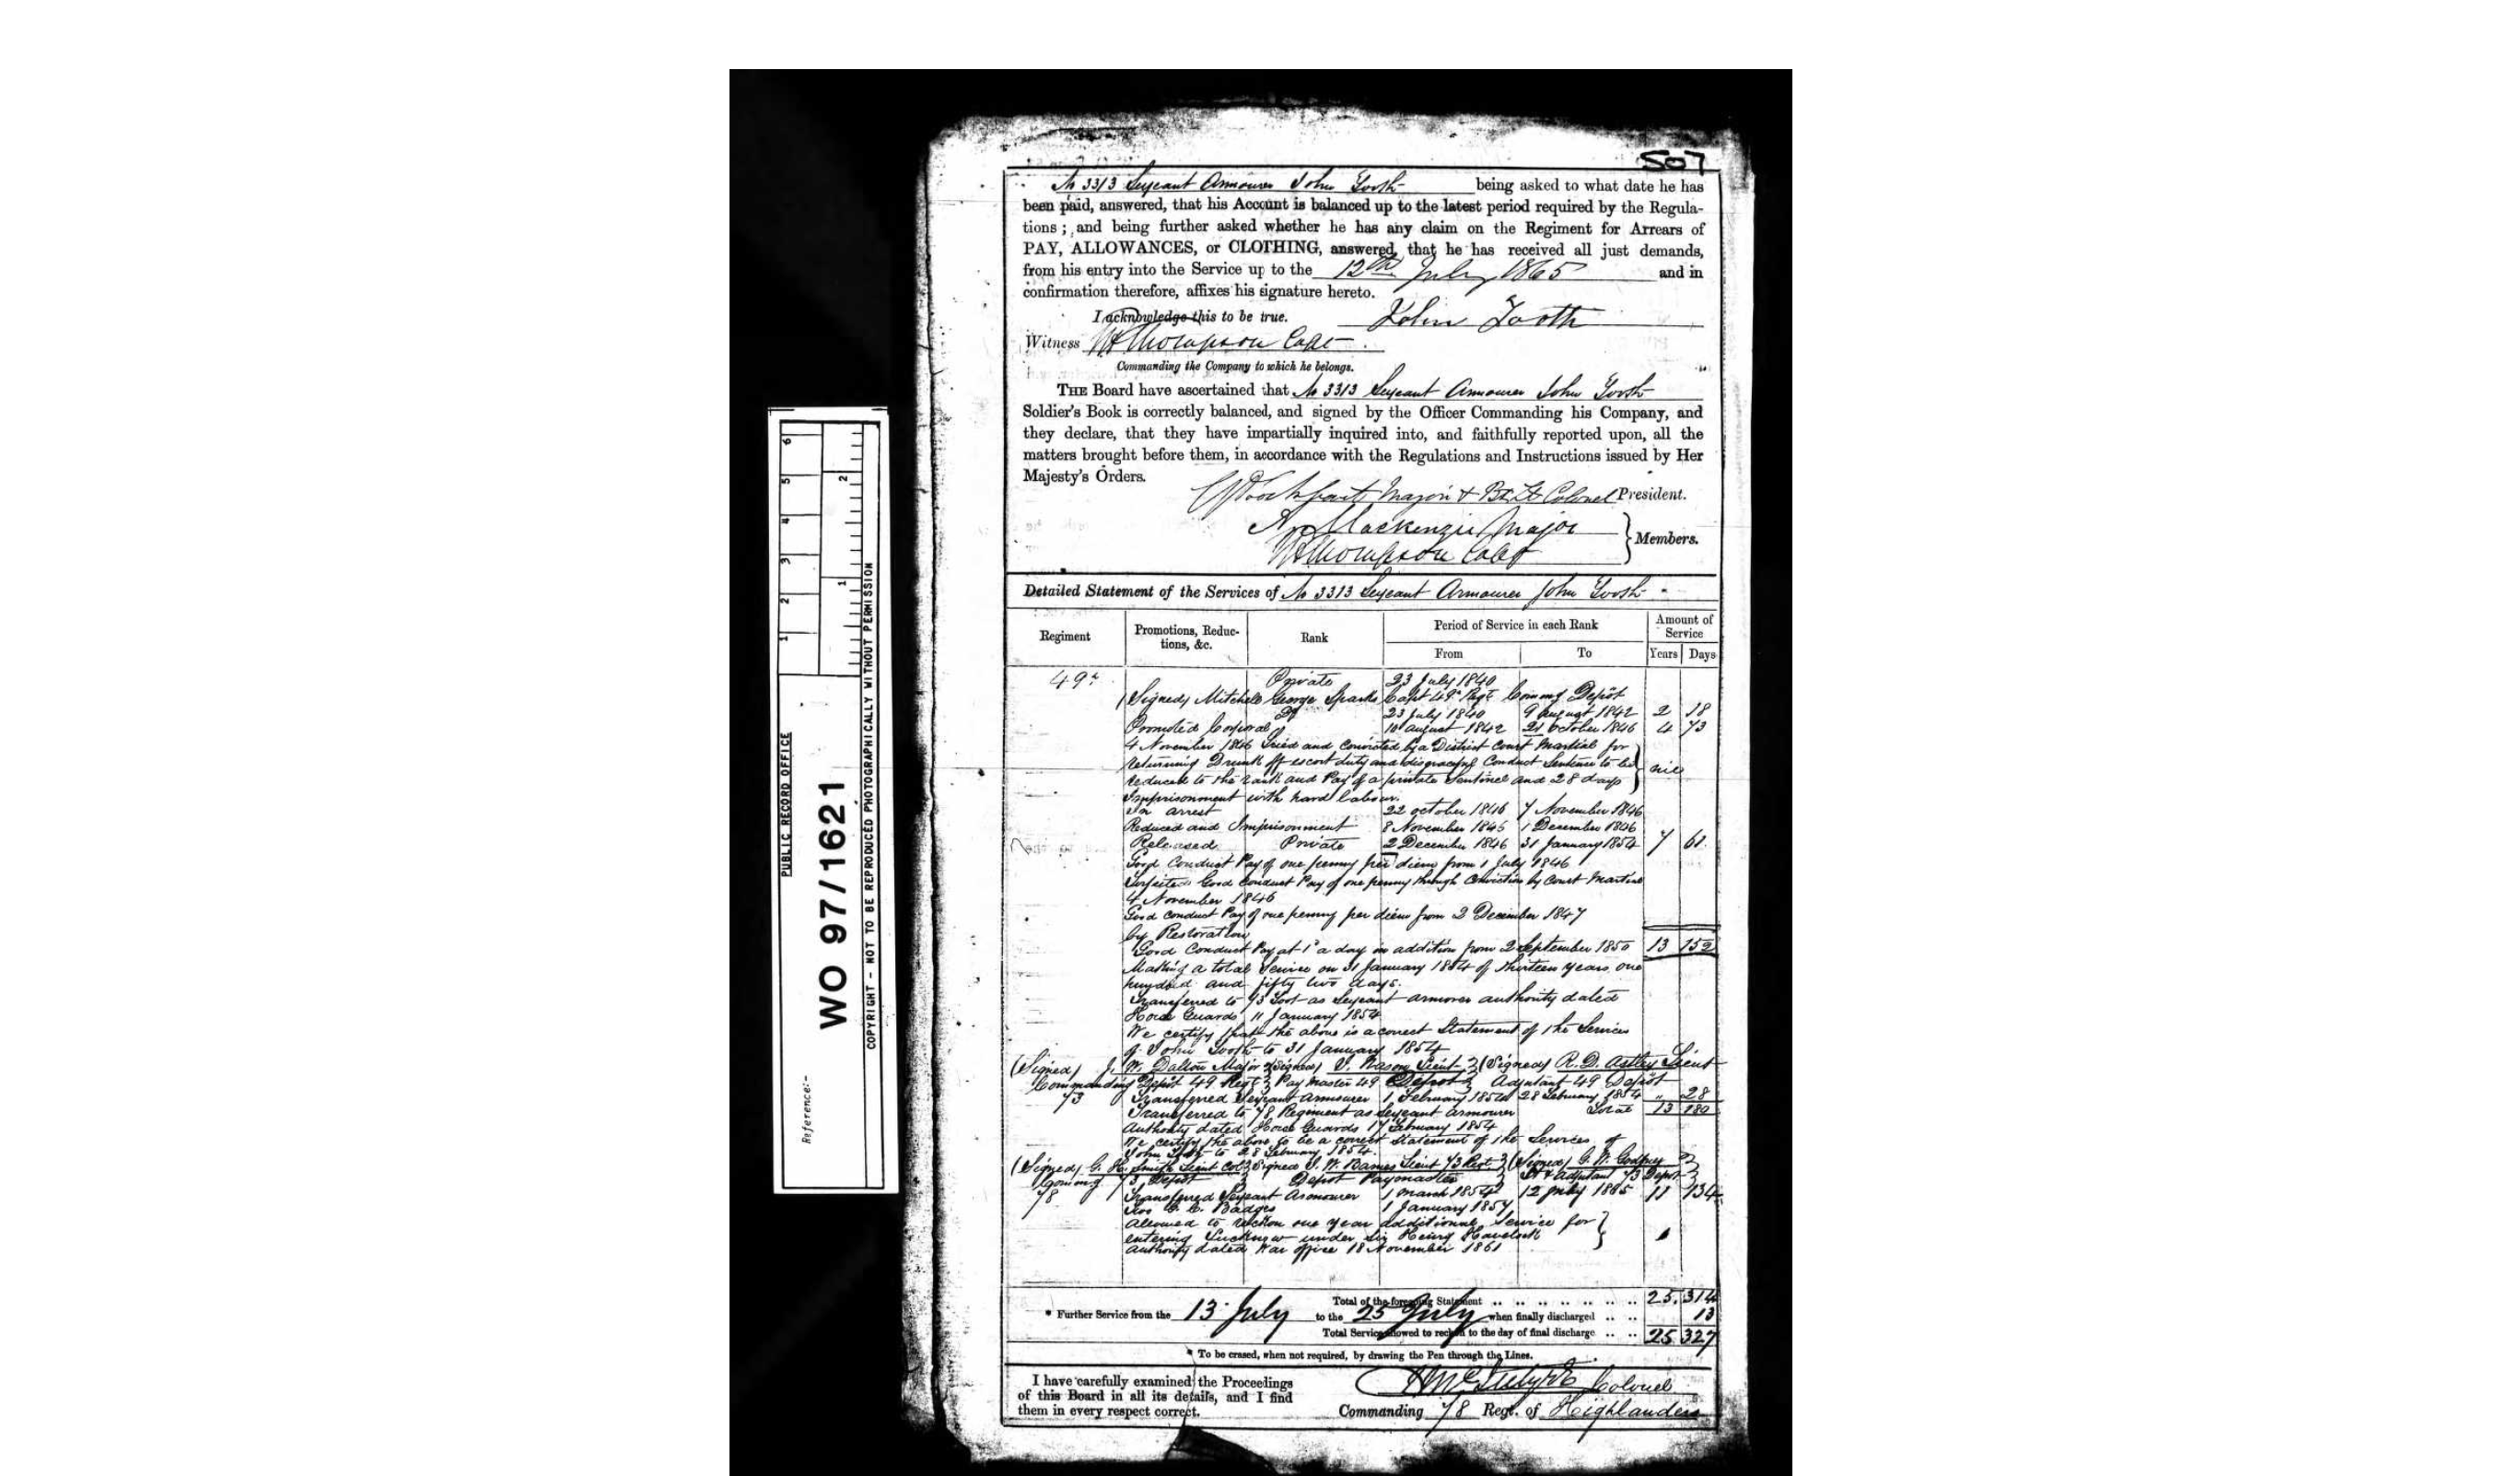 507
No 3313 Serjeant Armourer John Tooth being asked to what date he has
been paid, answered, that his Account is balanced up to the latest period required by the Regula-
tions ; and being further asked whether he has any claim on the Regiment for Arrears of
PAY, ALLOWANCES, or CLOTHING, answered, that he has received all just demands,
from his entry into the Service up to the 12th July 1865 and in
confirmation therefore, affixes his signature hereto.
I acknowledge this to be true. John Tooth
Witness Thompson Capt
Commanding the Company to which he belongs.
THE Board have ascertained that No 3313 Serjeant Armourer John Tooth
Soldier's Book is correctly balanced, and signed by the Officer Commanding his Company, and
they declare, that they have impartially inquired into, and faithfully reported upon, all the
matters brought before them, in accordance with the Regulations and Instructions issued by Her
Majesty's Orders.
Major & Bt Lt Colonel President.
Mackenzie Major
Thompson Capt
Members.
Detailed Statement of the Services of No 3313 Serjeant Armourer John Tooth
Regiment
Promotions, Reduc-
tions, &c.
Rank
Period of Service in each Rank
From To
Amount of
Service
Years Days
49th Private 23 July 1840
(Signed) Mitchell George Sparks Capt 49th Regt Commg Depôt
Do 23 July 1840 9 August 1842 2 18
Promoted Corporal 10 August 1842 21 October 1846 4 73
4 November 1846 Tried and Convicted by a District Court Martial for
returning Drunk off escort duty and disgraceful Conduct Sentence to be
reduced to the rank and Pay of a private Sentinel and 28 days nil
Imprisonment with hard labour.
In arrest 22 october 1846 7 November 1846
Reduced and Imprisonment 8 November 1846 1 December 1846
Released Private 2 December 1846 31 January 1854 7 61
Good Conduct Pay of one penny per diem from 1 July 1846
Forfeited Good Conduct Pay of one penny through Conviction by Court Martial
4 November 1846
Good Conduct Pay of one penny per diem from 2 December 1847
by Restoration
Good Conduct Pay at 1d a day in addition from 2 September 1850 13 152
Making a total Service on 31 January 1854 of thirteen years one
hundred and fifty two days.
Transferred to 73 Foot as Serjeant armourer authority dated
Horse Guards 11 January 1854
We certify that the above is a correct Statement of the Services
of John Tooth to 31 January 1854
(Signed) J. W. Dalton Major (Signed) V. Rason Lieut (Signed) R. D. Astley Lieut
Commanding Depôt 49 Regt Pay Master 49 Depôt Adjutant 49 Depôt
73 Transferred Serjeant Armourer 1 February 1854 28 February 1854 " 28
Transferred to 78 Regiment as Serjeant Armourer Total 13 180
Authority dated Horse Guards 17 February 1854
We certify the above to be a correct Statement of the Services of
John Tooth to 28 February 1854.
(Signed) G. H. Smith Lieut Col (Signed) W. Barnes Lieut 73 Regt (Signed) G. W. Godfrey
Commg 73 Depôt Depôt Paymaster Lt & Adjutant 73 Depôt
78 Transferred Serjeant Armourer 1 March 1854 12 July 1865 11 134
Two G. C. Badges 1 January 1857
Allowed to reckon one year additional Service for
entering Lucknow under Sir Henry Havelock 1
Authority dated War Office 18 November 1861
Total of the foregoing Statement .. .. .. 25. 314
* Further Service from the 13 July to the 25 July when finally discharged .. .. 13
Total Service allowed to reckon to the day of final discharge .. .. 25 327
* To be erased, when not required, by drawing the Pen through the Lines.
I have carefully examined the Proceedings
of this Board in all its details, and I find
them in every respect correct.
Colonel
Commanding 78 Regt. of Highlanders
PUBLIC RECORD OFFICE
Reference:-
WO 97/1621
COPYRIGHT - NOT TO BE REPRODUCED PHOTOGRAPHICALLY WITHOUT PERMISSION
1 2 3 4 5 6
1 2